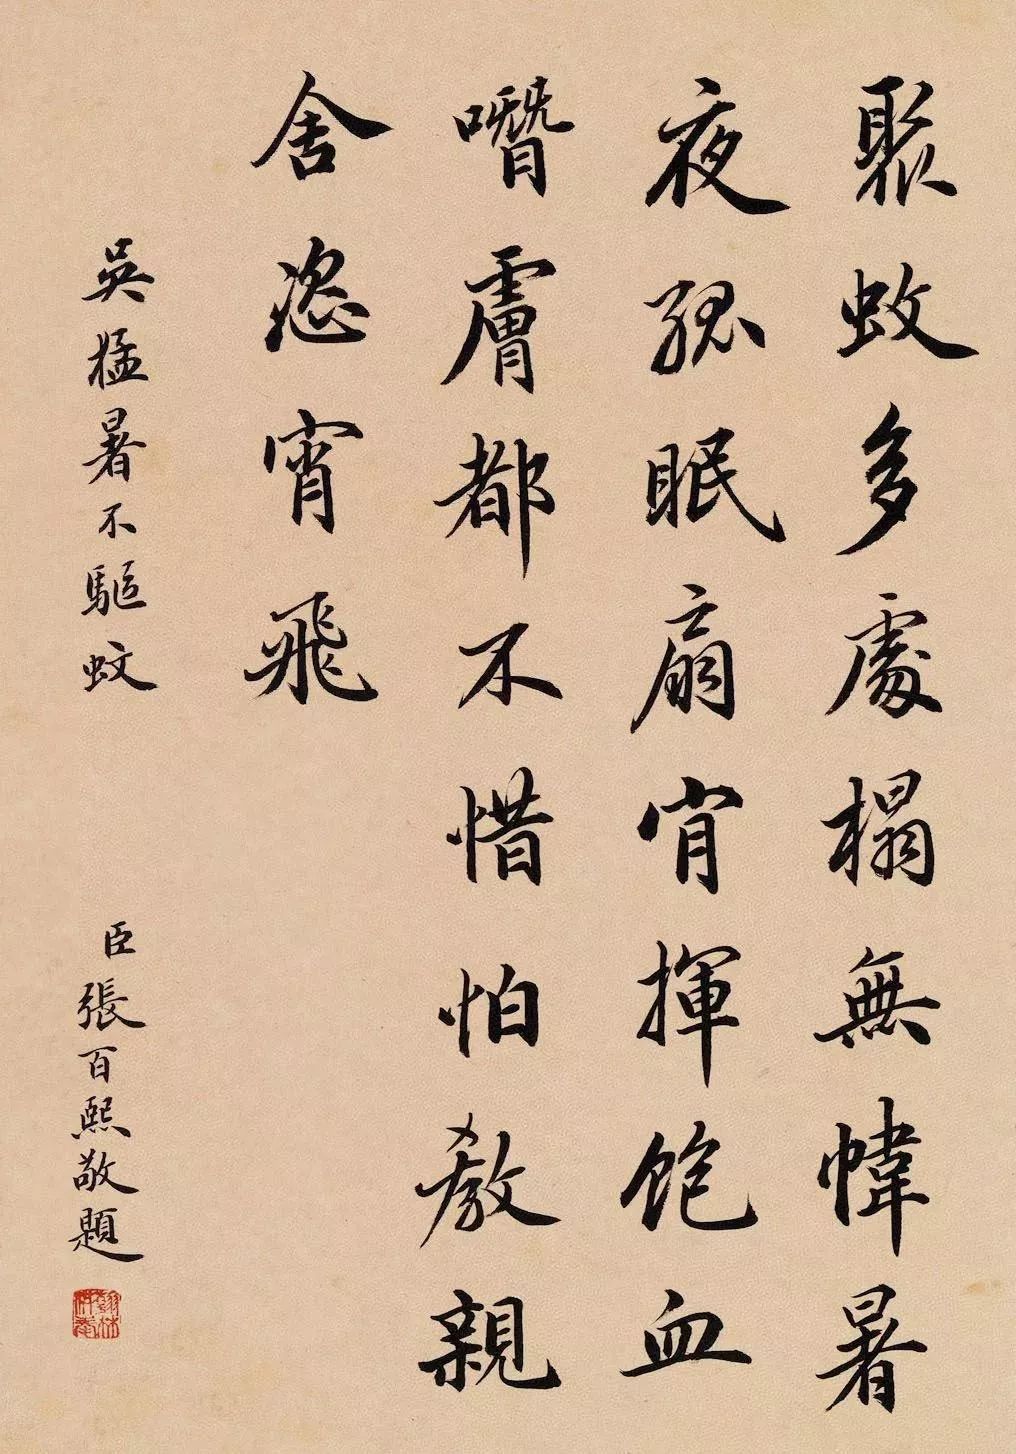 聚蚊多處榻無幃暑
夜孤眠扇肯揮飽血
噆膚都不惜怕教親
舍恣宵飛
吳猛暑不驅蚊
臣張百熙敬題
翰林供奉